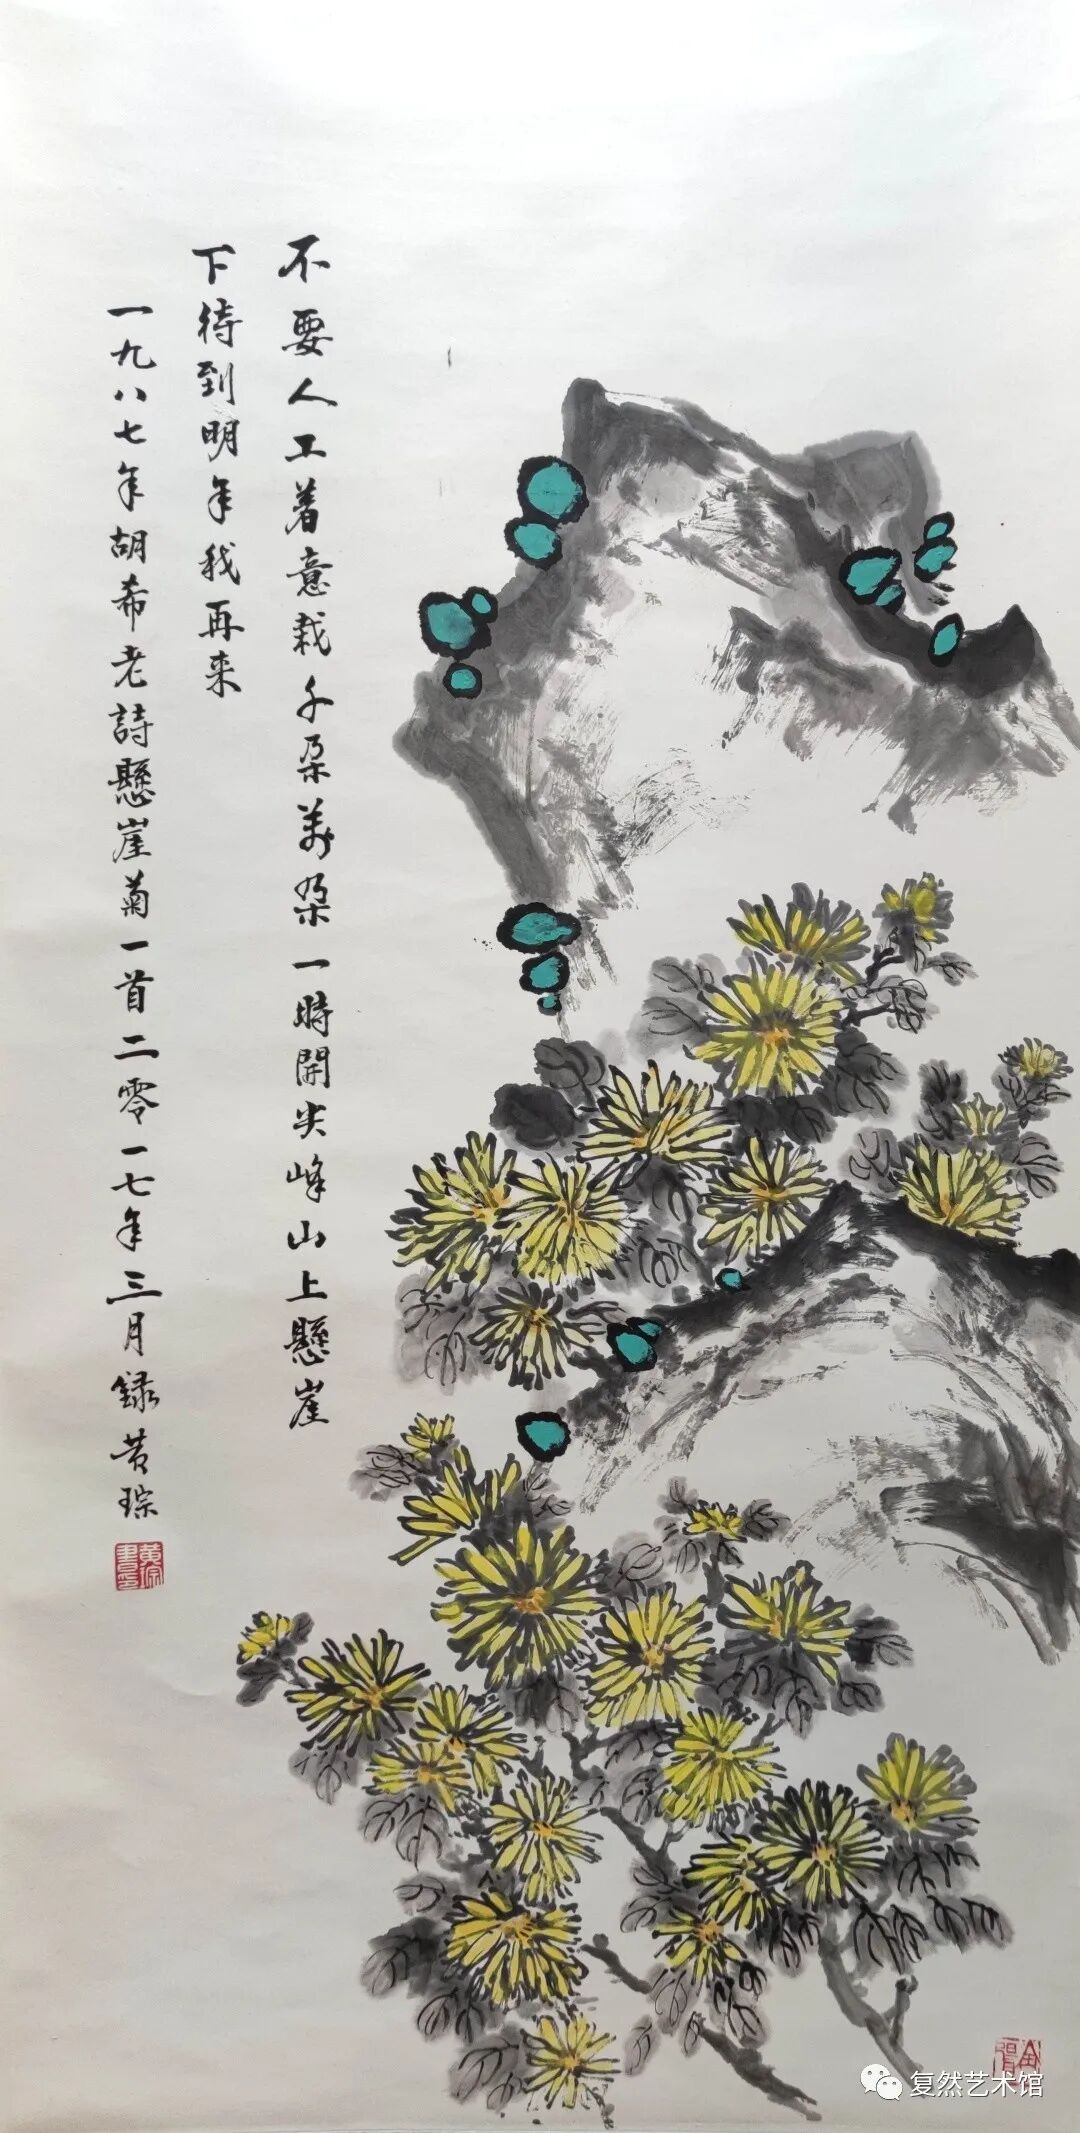 不要人工着意栽千朶萬朶一時開尖峰山上懸崖
下待到明年我再来
一九八七年胡希老詩懸崖菊一首二零一七年三月録黄琮
复然艺术馆